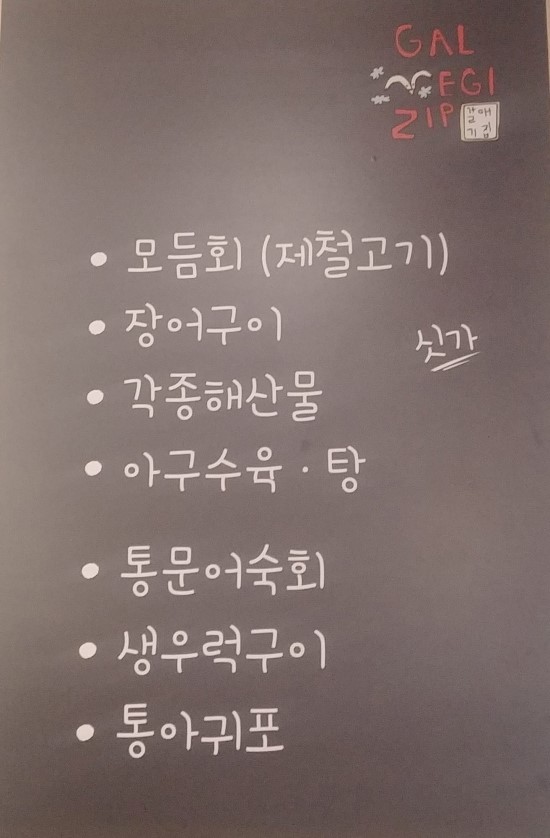 GAL
EGI
ZIP
갈매
기집
• 모듬회 (제철고기)
• 장어구이
싯가
• 각종해산물
• 아구수육 · 탕
• 통문어숙회
• 생우럭구이
• 통아귀포